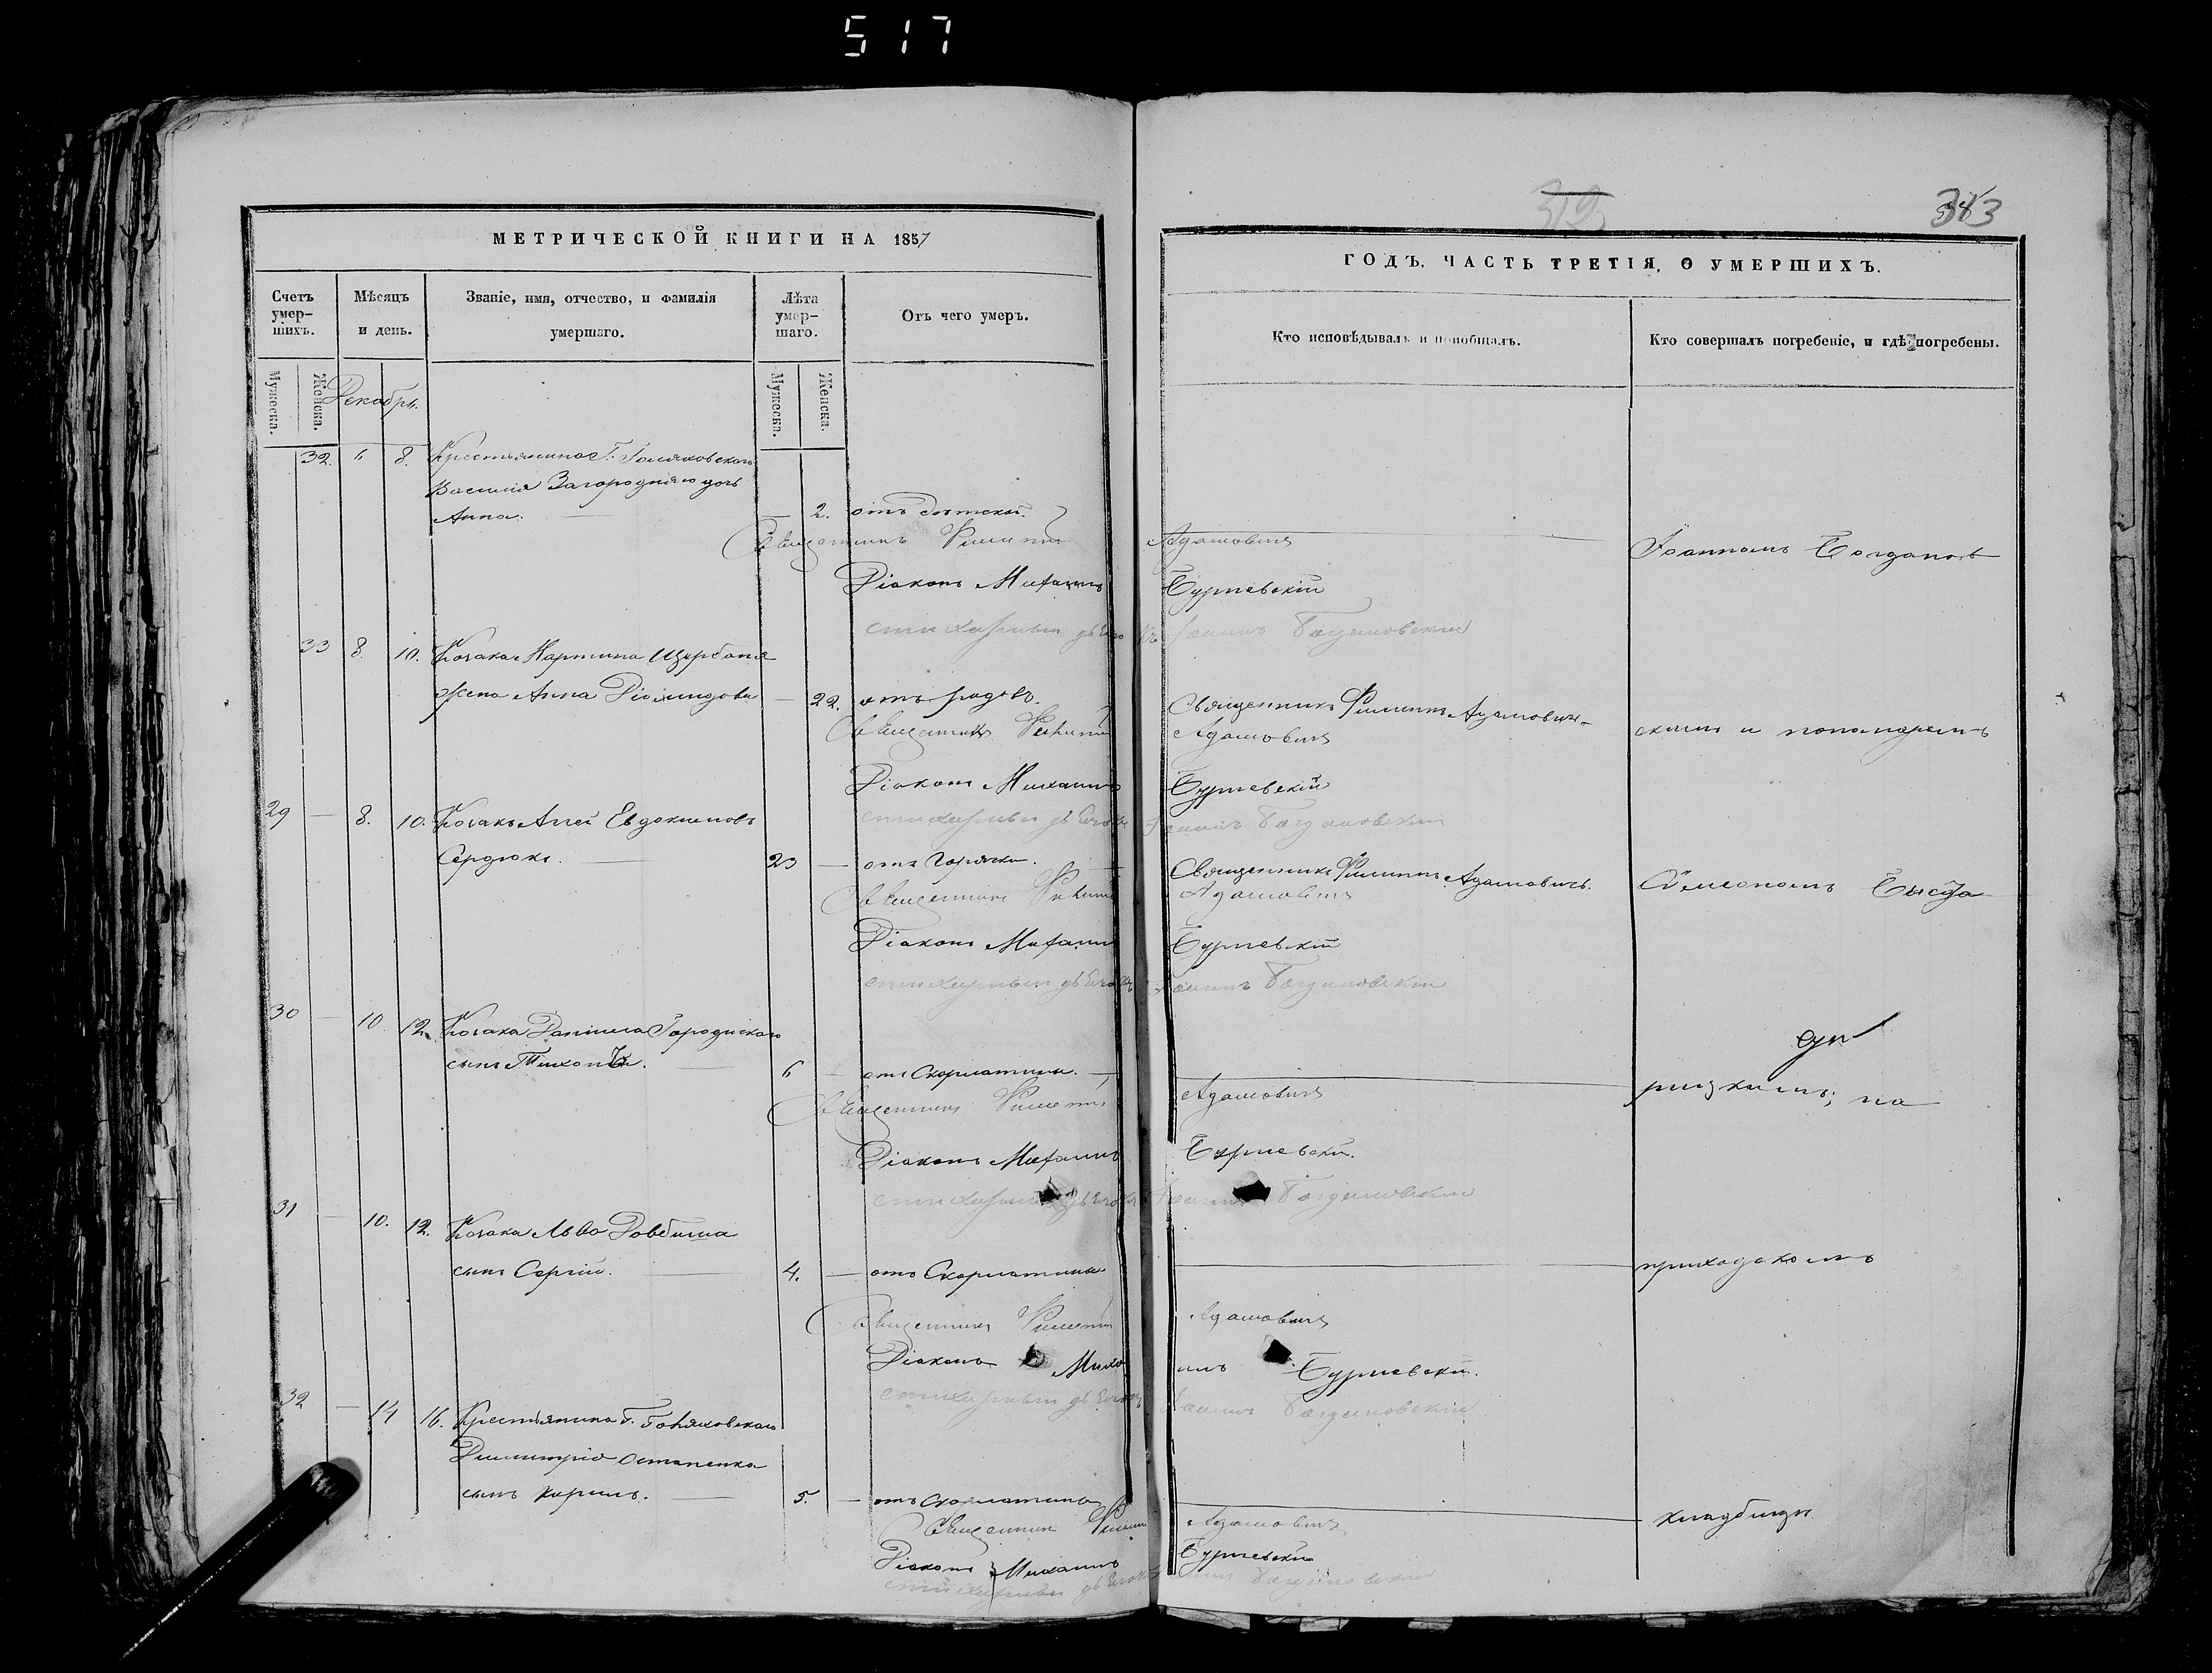 517
383
МЕТРИЧЕСКОЙ КНИГИ НА 1857
ГОДЪ, ЧАСТЬ ТРЕТІЯ, О УМЕРШИХЪ.
Счетъ умер-
шихъ.
Мѣсяцъ
и день.
Званіе, имя, отчество, и фамилія
умершаго.
Лѣта
умер-
шаго.
Отъ чего умеръ.
Кто исповѣдывалъ и пріобщалъ.
Кто совершалъ погребеніе, и гдѣ погребены.
Мужеска.
Женска.
Декабрь.
Мужеска.
Женска.
32. 6 8. Крестьянина Г.
Василія Загородняго дочь
Анна. — 2. отъ
Священникъ Филиппъ Адамовичъ
Іоанномъ Богданов
Діаконъ Михаилъ Буршевскій
стихарный дьячокъ Іоаннъ Богдановскій
33 8. 10. Козака Мартина Щербаня
жена Анна — 22. отъ родовъ.
Священникъ Филиппъ Адамовичъ
скимъ и пономаремъ
Священникъ Филиппъ Адамовичъ
Діаконъ Михаилъ Буршевскій
стихарный дьячокъ Іоаннъ Богдановскій
29 — 8. 10. Козакъ Евдокимовъ
Сердюкъ. — 23 — отъ Горячки.
Священникъ Филиппъ Адамовичъ.
Сѵмеономъ
Священникъ Филиппъ Адамовичъ
Діаконъ Михаилъ Буршевскій
стихарный дьячокъ Іоаннъ Богдановскій
30 — 10. 12. Козака Даніила Городискаго
сынъ — 6 — отъ Скорлатины. —
на
Священникъ Филиппъ Адамовичъ
Діаконъ Михаилъ Буршевскій.
стихарный дьячокъ Іоаннъ Богдановскій
31 — 10. 12. Козака Льва Довбиша
сынъ Сергій. — 4. — отъ Скорлатины
приходскомъ
Священникъ Филиппъ Адамовичъ
Діаконъ Михаилъ Буршевскій.
стихарный дьячокъ Іоаннъ Богдановскій
32 — 14 16. Крестьянина Г.
Димитрія Остапенка
сынъ Кирилъ. — 5. — отъ Скорлатины
кладбищѣ
Священникъ Филиппъ Адамовичъ
Діаконъ Михаилъ Буршевскій
стихарный дьячокъ Іоаннъ Богдановскій